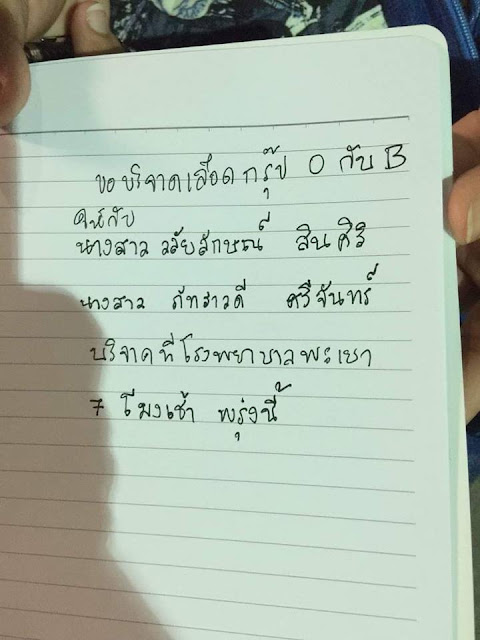 ขอบริจาคเลือดกรุ๊ป O กับ B
ให้กับ
นางสาว วลัยลักษณ์ สินศิริ
นางสาว ภัทราวดี ศรีจันทร์
บริจาคที่โรงพยาบาลพะเยา
7 โมงเช้า พรุ่งนี้